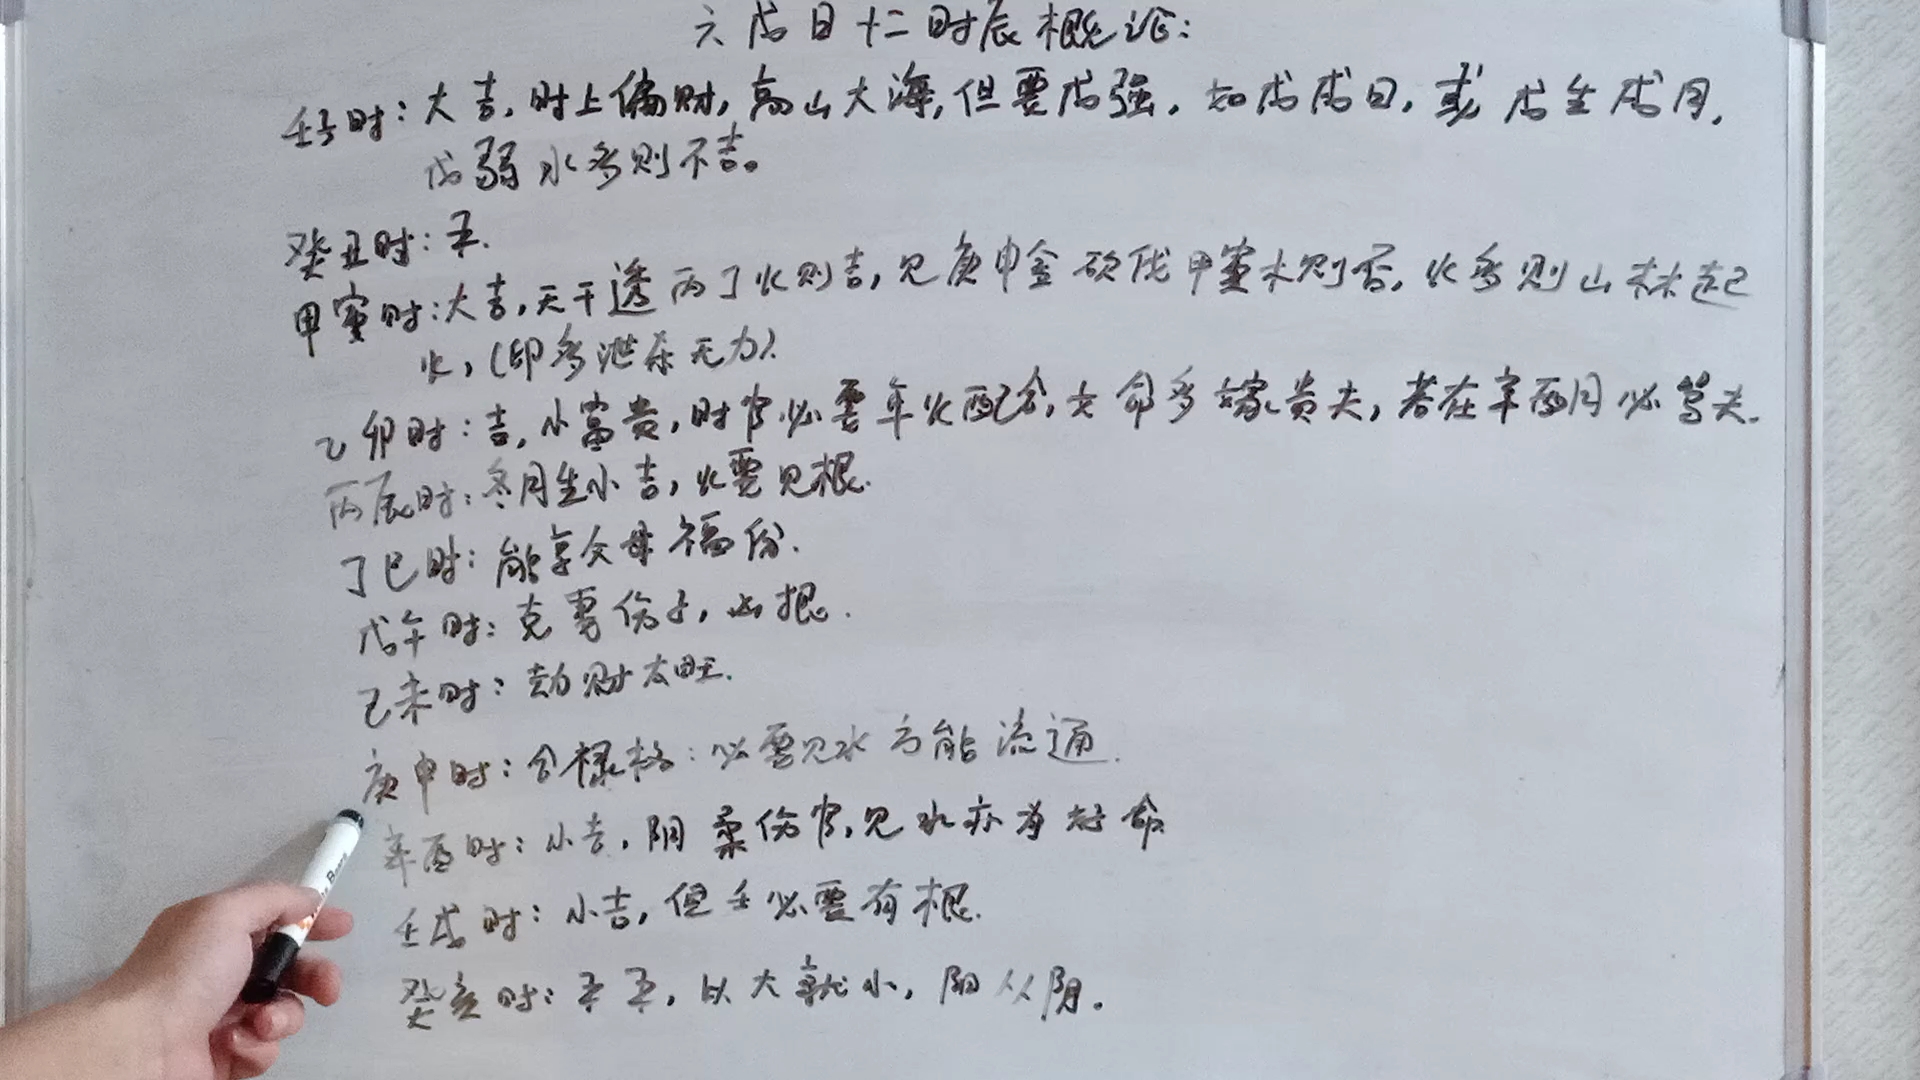 六戊日十二时辰概论：
壬子时：大吉，时上偏财，高山大海，但要戊强，如戊戌日，或戊生戌月，
戊弱水多则不吉。
癸丑时：平.
甲寅时：大吉，天干透丙丁火则吉，见庚申金砍伐甲寅木则否，火多则山林起
火，(印多泄杀无力).
乙卯时：吉，小富贵，时官必要年火配合，女命多嫁贵夫，若在辛酉月必骂夫.
丙辰时：冬月生小吉，火要见根.
丁巳时：能享父母福份.
戊午时：克妻伤子，凶狠.
己未时：劫财太旺.
庚申时：合禄格：必要见水方能流通.
辛酉时：小吉，阴柔伤官，见水亦为好命
壬戌时：小吉，但壬必要有根.
癸亥时：平平，以大就小，阳从阴.